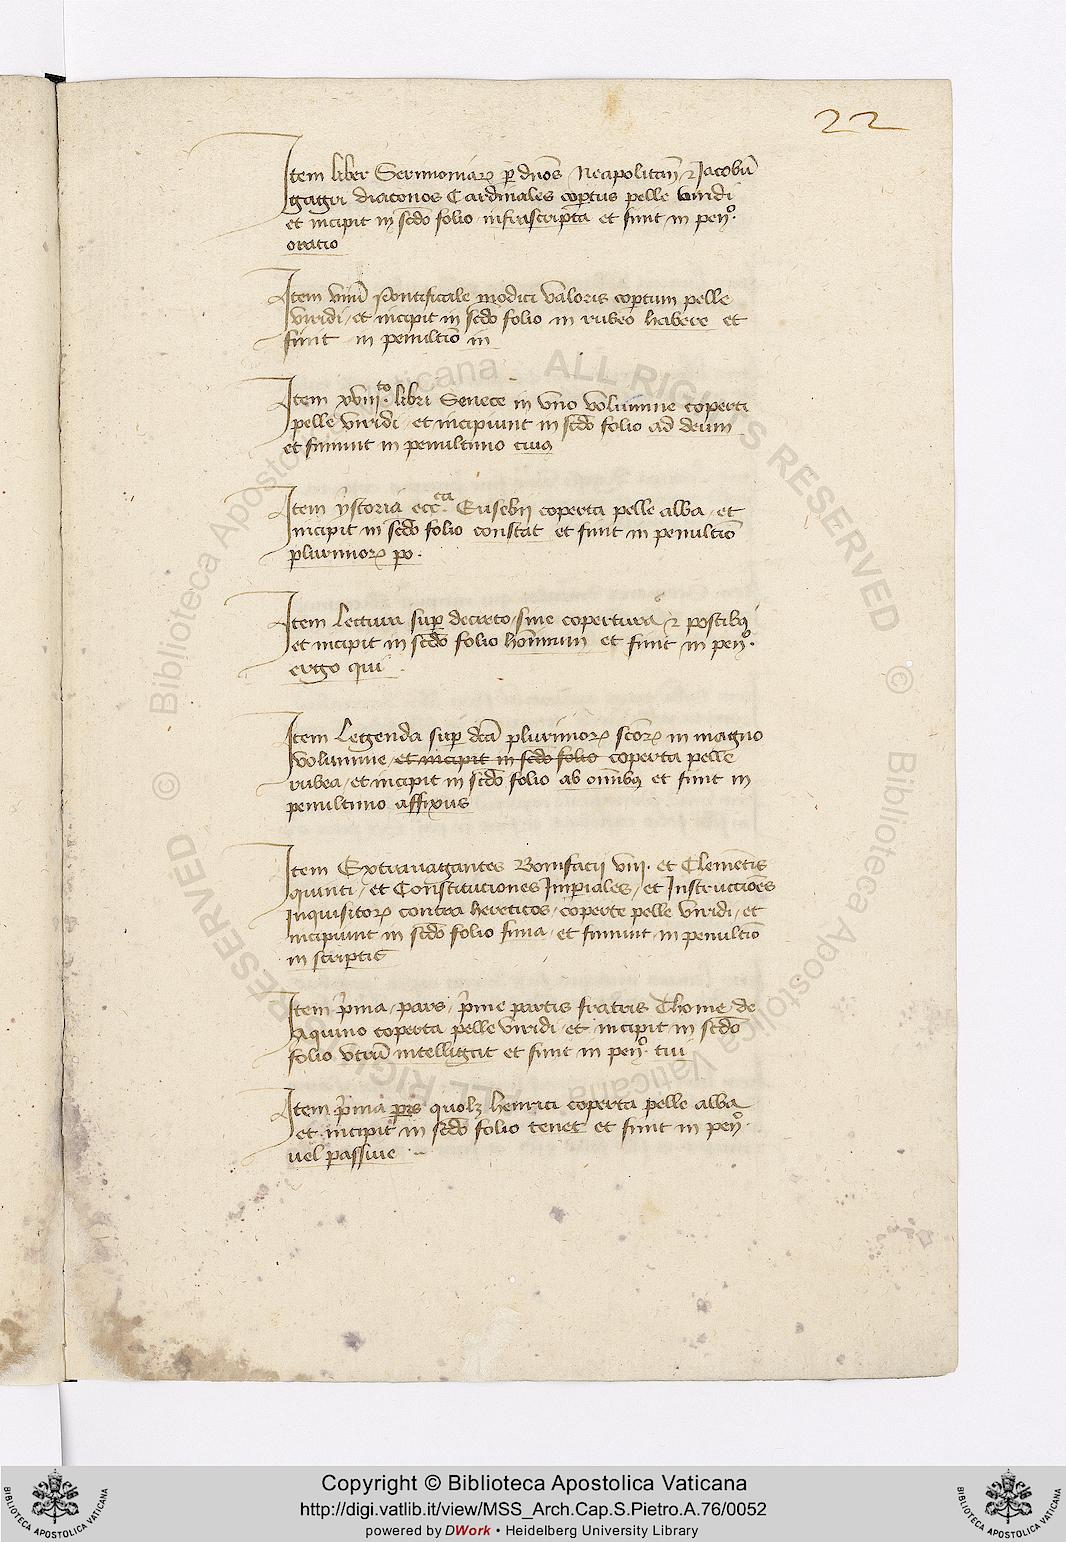 22
Item liber Serimoniarꝝ ꝑ dnōs Neapolitan̄ ⁊ Jacobū
gagri diaconos Cardinales coꝑtus pelle viridi
et incipit in scd̄o folio infrascripta et finit in pen̄º.
oratio
Item vnū Pontificale modici valoris coꝑtum pelle
viridi et incipit in scd̄o folio in rubeo habere et
finit in penultīo in
Item xviijto. libri Senece in vno volumine coperti
pelle viridi et incipiunt in scd̄o folio ad deum
et finiunt in penultimo cuiꝰ
Item ystoria ecc̄ca. Eusebij coperta pelle alba et
incipit in scd̄o folio constat et finit in penultīo
plurimorꝝ po.
Item Lectura suꝑ decreto sine copertura ⁊ postibꝫ
et incipit in scd̄o folio hominum et finit in pen̄º.
ergo qui
Item Legenda suꝑ dcā plurimorꝝ scōrꝝ in magno
volumine et incipit in scd̄o folio coperta pelle
rubea et incipit in scd̄o folio ab omībꝫ et finit in
penultimo affixus
Item Extravagantes Bonifacii viii. et Clemētis
quinti et Constitutiones Imperiales et Instrucciōes
Inquisitorꝝ contra hereticos coperte pelle viridi et
incipiunt in scd̄o folio firma et finiunt in penultīo
in scriptis
Item p̄ma pars p̄me partis fratris Thome de
Aquino coperta pelle viridi et incipit in scd̄o
folio vtrū intelligat et finit in pen̄º. tui
Item p̄ma pars quolꝫ henrici coperta pelle alba
et incipit in scd̄o folio tenet et finit in pen̄º.
uel passiue
© Biblioteca Apostolica Vaticana ALL RIGHTS RESERVED © Biblioteca Apostolica Vaticana ALL RIGHTS RESERVED
BIBLIOTECA APOSTOLICA VATICANA
Copyright © Biblioteca Apostolica Vaticana
http://digi.vatlib.it/view/MSS_Arch.Cap.S.Pietro.A.76/0052
powered by DWork • Heidelberg University Library
BIBLIOTECA APOSTOLICA VATICANA